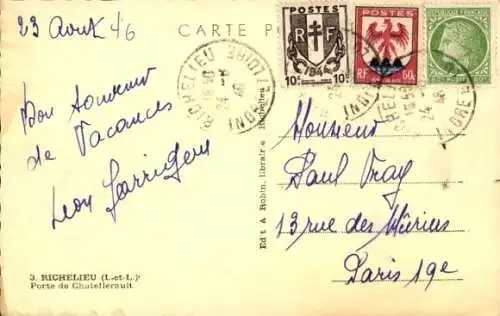 23 Aout 46
CARTE P
POSTES
RF
1944
10c 10c
POSTES
RF 60c
RICHELIEU
24 -8
46
INDRE
Bon souvenir
de Vacances
Leon
Monsieur
Paul Vray
13 rue des Mûriers
Paris 19e
Edit A Robin, libraire Richelieu
3. RICHELIEU (I.-et-L.)
Porte de Chatellerault